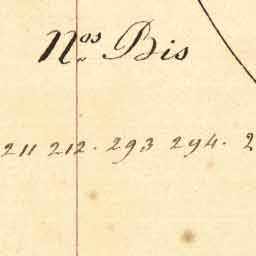 Nos Bis
211 212. 293 294. 2